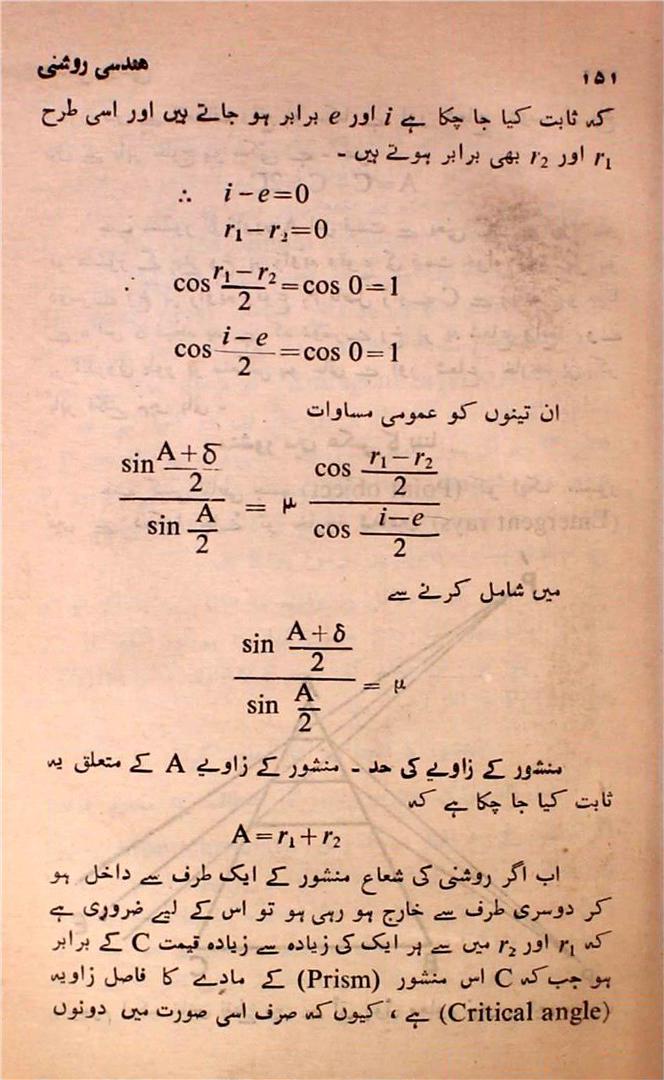 ۱۵۱ ھندسی روشنی
کہ ثابت کیا جا چکا ہے i اور e برابر ہو جاتے ہیں اور اسی طرح
r₁ اور r₂ بھی برابر ہوتے ہیں ۔
∴ i−e=0
r₁−r₂=0
∴ cos (r₁−r₂)/2 = cos 0=1
cos (i−e)/2 = cos 0=1
ان تینوں کو عمومی مساوات
(sin (A+δ)/2)/(sin A/2) = μ (cos (r₁−r₂)/2)/(cos (i−e)/2)
میں شامل کرنے سے
(sin (A+δ)/2)/(sin A/2) = μ
منشور کے زاویے کی حد ۔ منشور کے زاویے A کے متعلق یہ
ثابت کیا جا چکا ہے کہ
A=r₁+r₂
اب اگر روشنی کی شعاع منشور کے ایک طرف سے داخل ہو
کر دوسری طرف سے خارج ہو رہی ہو تو اس کے لیے ضروری ہے
کہ r₁ اور r₂ میں سے ہر ایک کی زیادہ سے زیادہ قیمت C کے برابر
ہو جب کہ C اس منشور (Prism) کے مادے کا فاصل زاویہ
(Critical angle) ہے ، کیوں کہ صرف اسی صورت میں دونوں